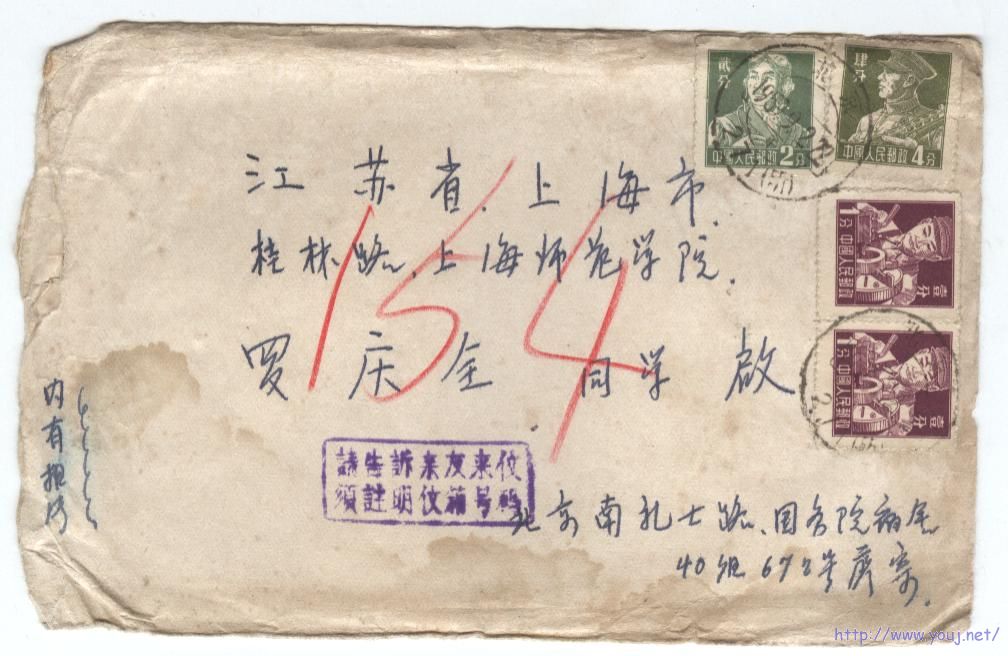 江苏省.上海市.
桂林路.上海师范学院.
罗庆全 同学 啟
154
内有相片
請告訴来友来伩
須註明伩箱号碼
北京南礼士路、国务院宿舍
40组672号 寄.
貳分
中國人民郵政 2分
肆分
中國人民郵政 4分
1分 中國人民郵政
壹分
1分 中國人民郵政
壹分
http://www.youj.net/